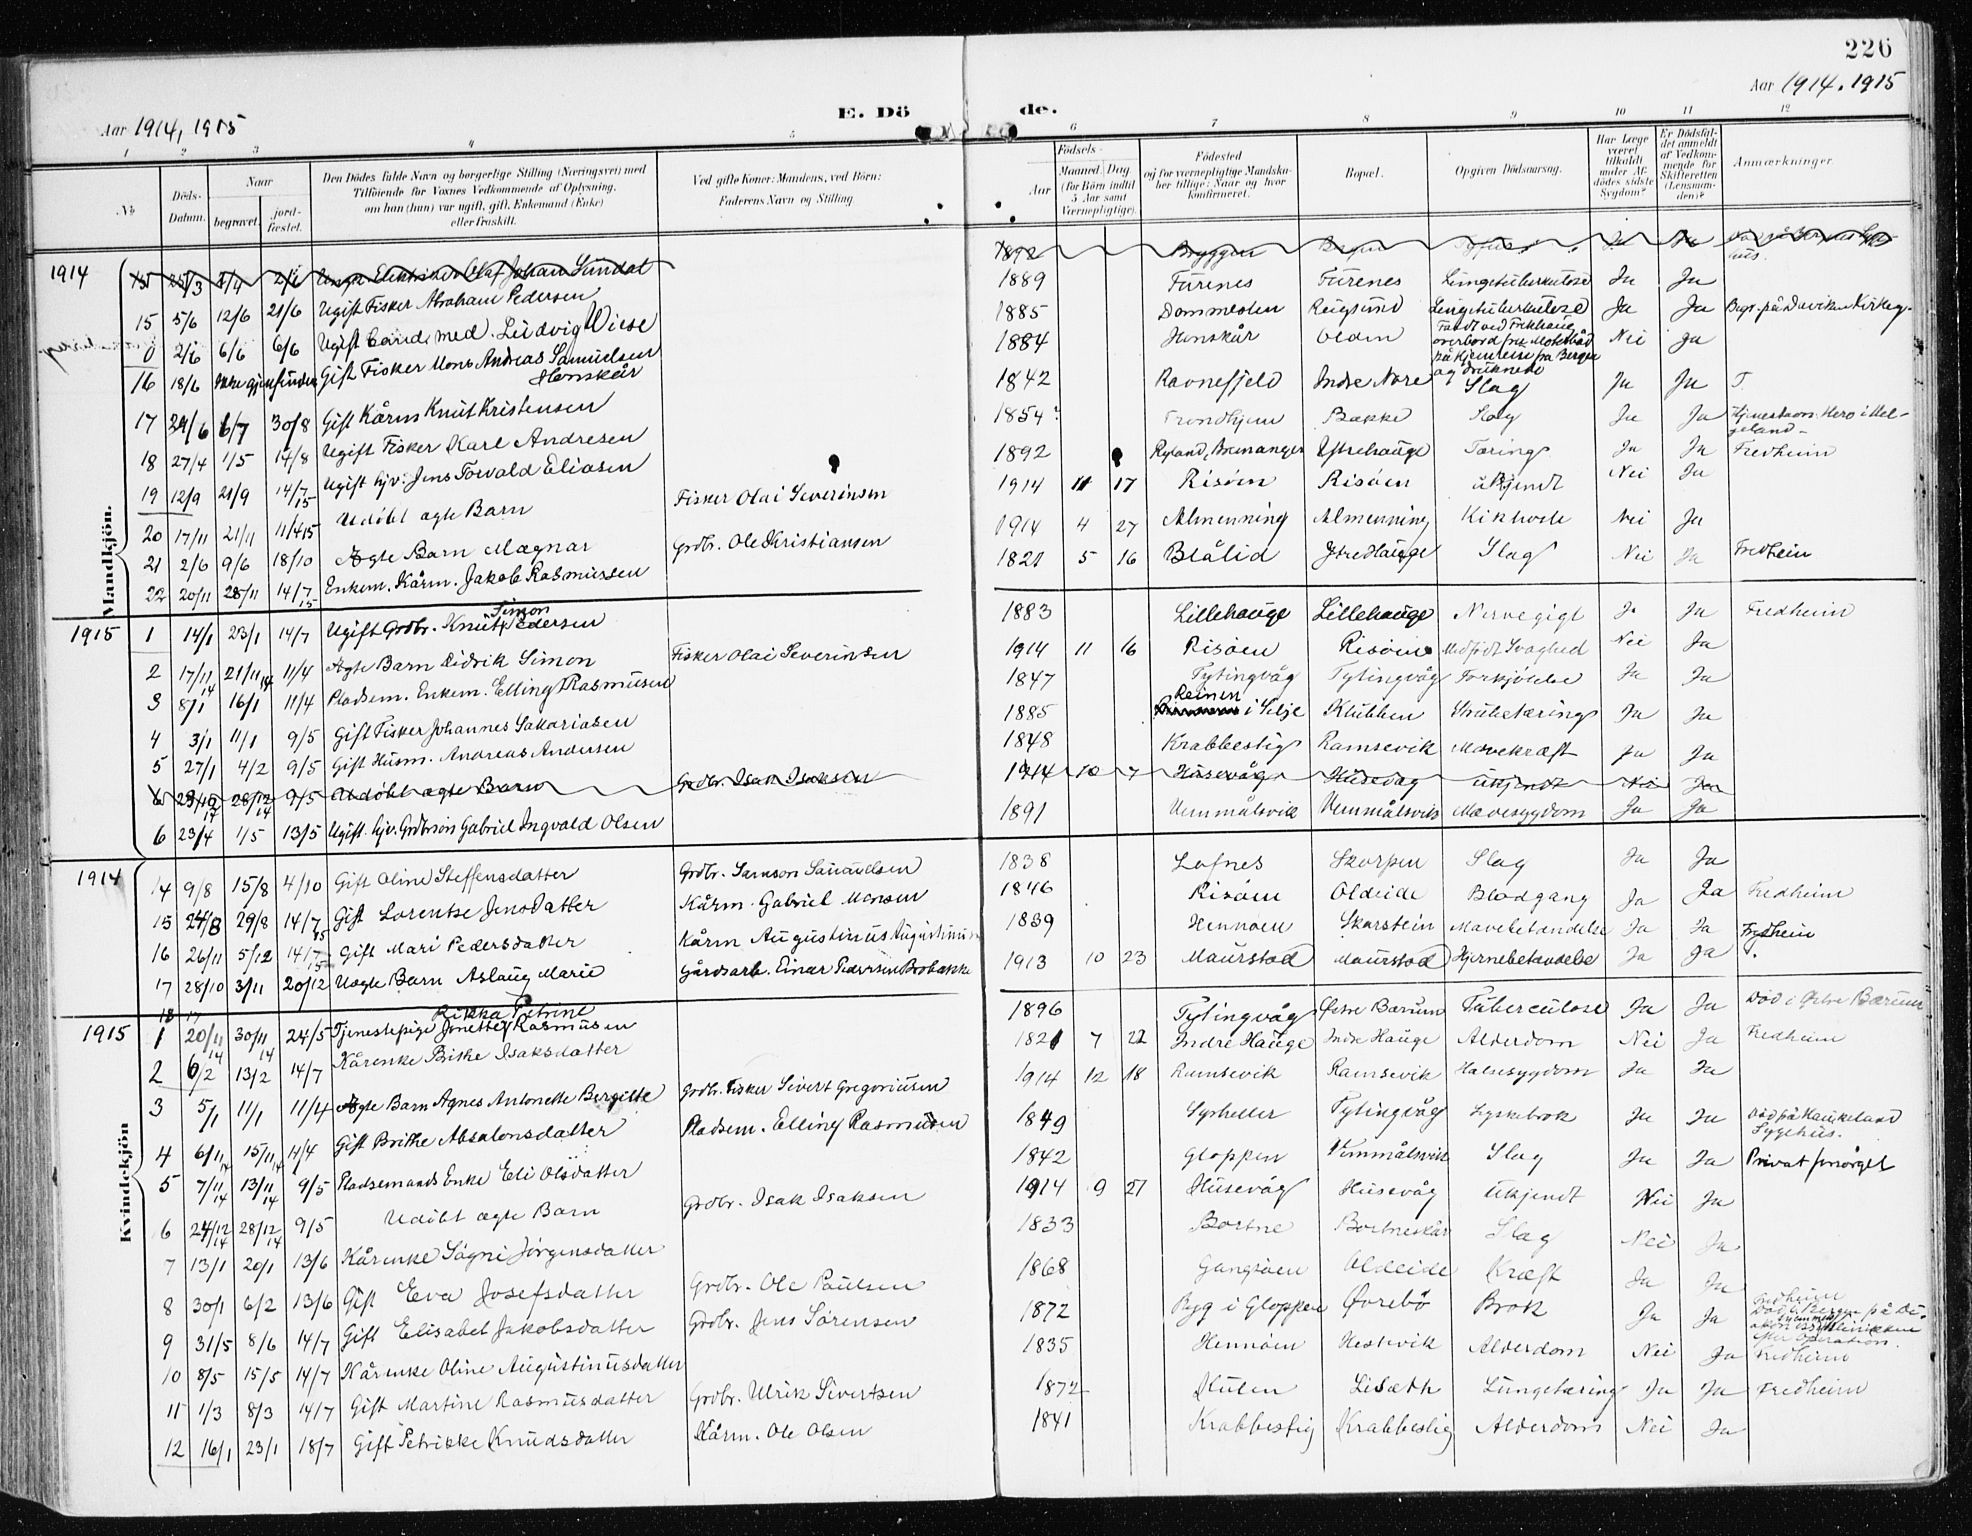 226
Aar 1914, 1915
E. Dö de.
Aar 1914. 1915
1 2 3 4 5 6 7 8 9 10 11 12
No
Döds-Datum.
Naar
begravet.
jord-fæstet.
Den Dödes fulde Navn og borgerlige Stilling (Næringsvei) med
Tilföiende for Voxnes Vedkommende af Oplysning,
om han (hun) var ugift, gift, Enkemand (Enke)
eller fraskilt.
Ved gifte Koner: Mandens, ved Börn:
Faderens Navn og Stilling.
Födsels-
Aar
Maaned. Dag.
(for Börn indtil
5 Aar samt
Værnepligtige).
Födested
og for værnepligtige Mandska-
ber tillige: Naar og hvor
konfirmeret.
Bopæl.
Opgiven Dödsaarsag.
Har Læge
været
tilkaldt
under Af-
dödes sidste
Sygdom?
Er Dödsfal-
det anmeldt
af Vedkom-
mende for
Skifteretten
(Lensman-
den)?
Anmærkninger.
1914
Mandkjön.
Olaf Johan Sundal 1892 Bryggen Ja Ja
15 5/6 12/6 21/6 Ugift Fisker Abraham Pedersen 1889 Furenes Furenes Lungetuberkulose Ja Ja
0 2/6 6/6 6/6 Ugift Cand. med. Ludvig Wiese 1885 Dommesten Rugsund Lungetuberkulose Ja Ja Begr. på Davikens Kirkeg.
16 18/6 Ikke gjenfunden Gift Fisker Mons Andreas Samuelsen Henskår 1884 Henskår Olden overbord fra Motorbåd på hjemreise fra Bergen og druknede Nei Ja
17 24/6 6/7 30/8 Gift Kårm Knut Kristensen 1842 Ravnefjeld Indre Nore Slag Ja Ja
18 27/4 1/5 14/8 Ugift Fisker Karl Andresen 1854? Trondhjem Bakke Slag Ja Ja Hjemstavn: Herø i Helgeland
19 12/9 21/9 14/7 15 Ugift hjv: Jens Torvald Eliasen 1892 Ryland, Bremanger Ytrehauge Tæring Ja Ja Fredheim
20 17/11 21/11 11/4 15 Udøbt ægte Barn Fisker Olai Severinsen 1914 11 17 Risöen Risöen ukjendt Nei Ja
21 2/6 9/6 18/10 Ægte Barn Magnar Grdbr. Ole Kristiansen 1914 4 27 Almenning Almenning Kikhoste Nei Ja
22 20/11 28/11 14/7 15 Enkem. Kårm. Jakob Rasmussen 1821 5 16 Blålid Ytrehauge Slag Nei Ja Fredheim
1915
1 14/1 23/1 14/7 Ugift Grdbr. Knut Simon Pedersen 1883 Lillehauge Lillehauge Nervegigt Ja Ja Fredheim
2 17/11 14 21/11 14 11/4 Ægte Barn Didrik Simon Fisker Olai Severinsen 1914 11 16 Risöen Risöen Medfödt Svaghed Nei Ja
3 8/1 16/1 11/4 Pladsem. Enkem. Elling Rasmusen 1847 Tytingvåg Tytingvåg Forkjölelse Ja Ja
4 3/1 11/1 9/5 Gift Fisker Johannes Sakariasen 1885 Reinen i Selje Klubben Strubetæring Ja Ja
5 27/1 4/2 9/5 Gift Husm. Andreas Andersen 1848 Krabbestig Ramsevik Mavekræft Ja Ja
6 28/12 14 9/5 Udöbt ægte Barn Grdbr. Isak Isaksen 1914 10 7 Husevåg Husevåg ukjendt Nei Ja
6 23/4 1/5 13/5 Ugift hjv. Grdbrsön Gabriel Ingvald Olsen 1891 Vemmålsvik Vemmålsvik Mavesygdom Ja Ja
1914
Kvindekjön
14 9/8 15/8 4/10 Gift Oline Steffensdatter Grdbr. Samson Samuelsen 1838 Lofnes Skorpen Slag Ja Ja
15 24/8 29/8 14/7 15 Gift Lorentse Jensdatter Kårm. Gabriel Monsen 1846 Risöen Oldeide Blodgang Ja Ja Fredheim
16 26/11 5/12 14/7 15 Gift Mari Pedersdatter Kårm Augustinus Augustinusen 1839 Hennöen Skarstein Mavebetændelse Ja Ja Fredheim
17 28/10 3/11 20/12 Uægte Barn Aslaug Marie Gårdsarb. Einar Pedersen Brobakke 1913 10 23 Maurstad Maurstad Hjernebetændelse Ja Ja
1915
1 20/11 14 30/11 14 24/5 Tjenestepige Jonette Rikka Petrine Rasmusen 1896 Tytingvåg Östre Bærum Tuberculose Ja Ja Död i Östre Bærum
2 6/2 13/2 14/7 Kårenke Brithe Isaksdatter 1821 7 22 Indre Hauge Indre Hauge Alderdom Nei Ja Fredheim
3 5/1 11/1 11/4 Ægte Barn Agnes Antonette Bergitte Grdbr. Fisker Sivert Gregoriusen 1914 12 18 Ramsevik Ramsevik Halsesygdom Ja Ja
4 6/11 14 15/11 14 11/4 Gift Brithe Absalonsdatter Pladsem. Elling Rasmusen 1849 Tytingvåg Lyskebrok Ja Ja Död på Haukeland Sygehus.
5 7/11 14 13/11 14 9/5 Pladsemands Enke Eli Olsdatter 1842 Gloppen Vemmålsvik Slag Ja Ja Privat forsörget
6 24/12 14 28/12 14 9/5 Udöbt ægte Barn Grdbr. Isak Isaksen 1914 9 27 Husevåg Husevåg Ukjendt Nei Ja
7 13/1 20/1 13/6 Kårenke Sögni Jörgensdatter 1833 Bortne Bortneskår Slag Nei Ja
8 30/1 6/2 13/6 Gift Eva Josefsdatter Grdbr. Ole Paulsen 1868 Gangsöen Oldeide Kræft Ja Ja
9 31/5 8/6 14/7 Gift Elisabet Jakobsdatter Grdbr. Jens Sörensen 1872 Byg i Gloppen Övrebö Brok Ja Ja Fredheim Död i Bergen på efter operation.
10 8/5 15/5 14/7 Kårenke Oline Augustinusdatter 1835 Hennöen Hestevik Alderdom Nei Ja Fredheim
11 1/3 8/3 14/7 Gift Martine Rasmusdatter Grdbr. Ulrik Sivertsen 1872 Lisæth Lungetæring Ja Ja Fredheim
12 16/1 23/1 18/7 Gift Petrikke Knudsdatter Kårm. Ole Olsen 1841 Krabbestig Krabbestig Alderdom Nei Ja